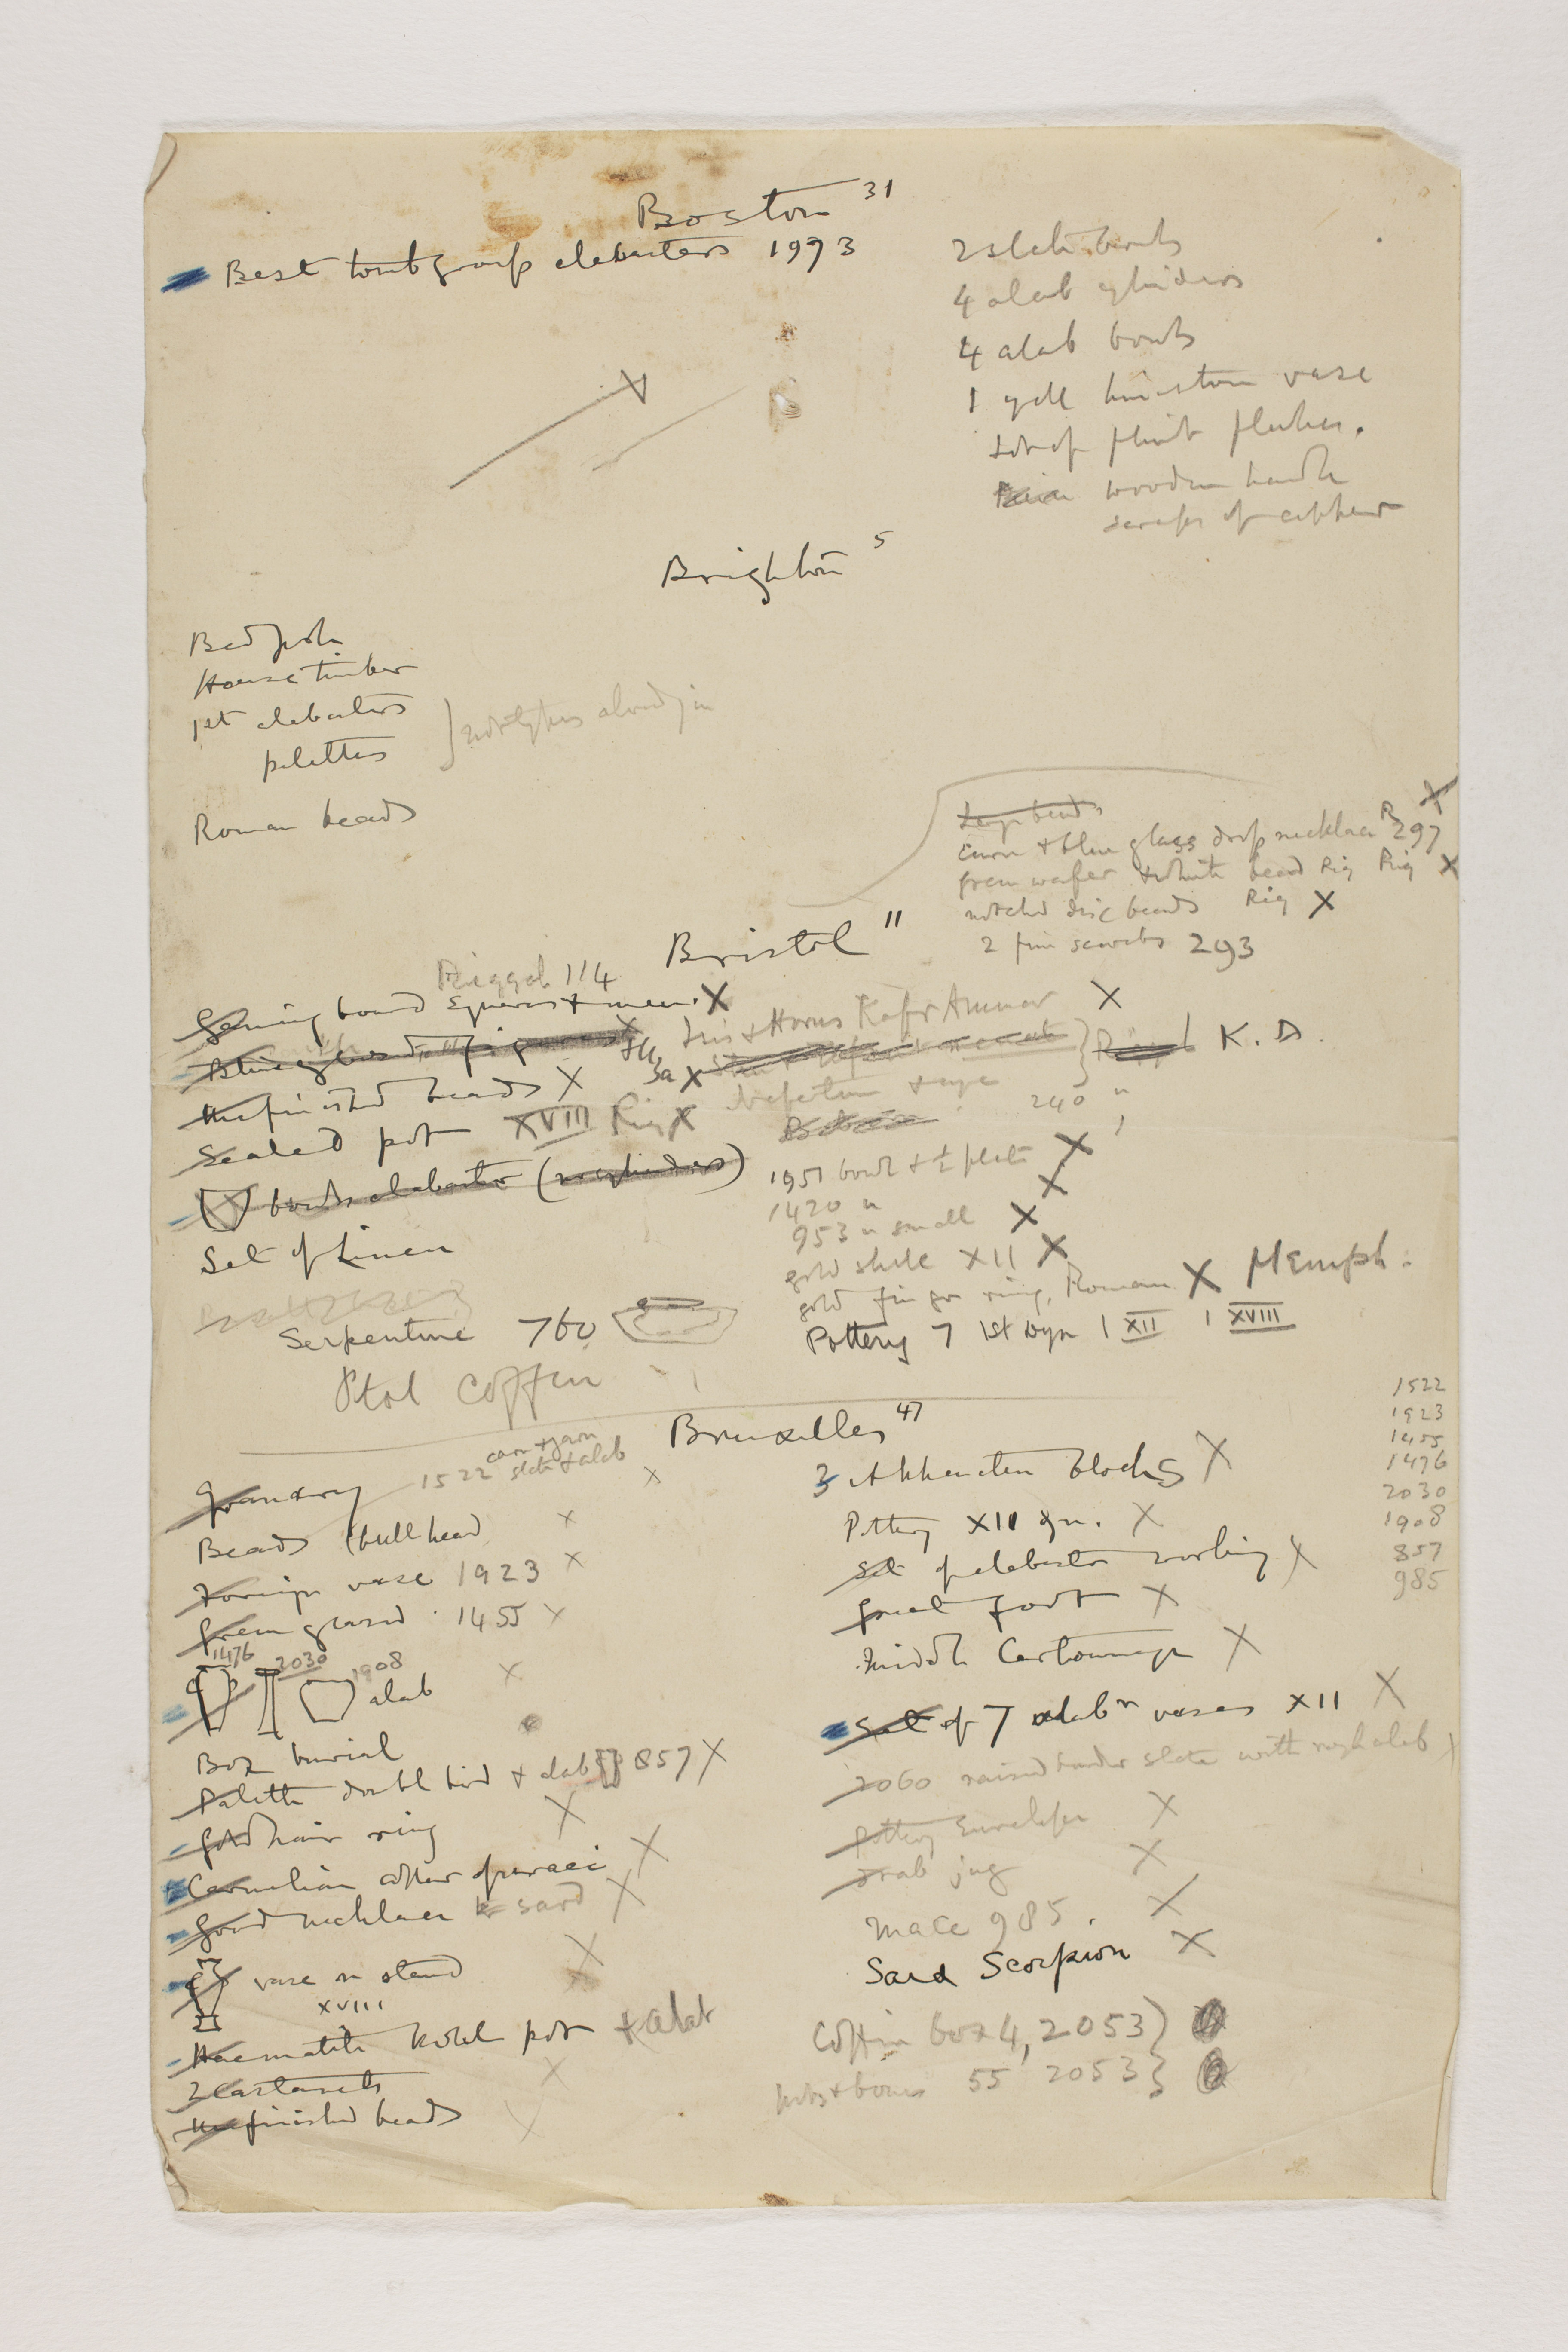 Boston 31
Best tomb group alabasters 1973
2 slate bowls
4 alab cylinders
4 alab bowls
1 yell limestone vase
Lot of flint flakes.
wooden handle
scraps of copper
Brighton 5
Bed pole
House timber
1st alabasters
palettes
not types already in
Roman beads
carn + blue glass drop necklace R 297 X
green wafer + white bead Rig Rig X
notched disc beads Rig X
2 fine scarabs 293
Bristol 11
Riqqeh 114
Gaming board squares + men. X
Isis + Horus Kafr Ammar X
K. A.
Unfinished beads X
Nefertum + aegis
240 "
Sealed pot XVIII Riq X
bowls alabaster (no cylinders)
1951 bowl + ½ plate X
1420 " X
953 " small X
Set of Linen
gold shell XII X
gold finger ring, Roman X Memph.
Serpentine 760
Pottery 7 1st Dyn 1 XII 1 XVIII
Ptol Coffin
Bruxelles 47
Granary 1522 slate + alab X
Beads (bull head X
Foreign vase 1923 X
Green glazed 1455 X
1476 2030 1908
alab X
Box burial
Palette double bird + alab 857 X
Gold hair ring X
Carnelian collar of uraei X
Good necklace sard X
vase on stand X
XVIII
Haematite kohl pot + alab
2 castanets X
Unfinished beads X
3 Akhenaten blocks X
Pottery XII dyn. X
Set of alabaster working X
Great foot X
Middle Cartonnage X
Set of 7 alabr vases XII X
2060 raised border slate with rough alab X
Pottery Envelope X
Drab jug X
Mace 985. X
Sard Scorpion X
Coffin box 4, 2053)
pots + bones 55 2053}
1522
1923
1455
1476
2030
1908
857
985